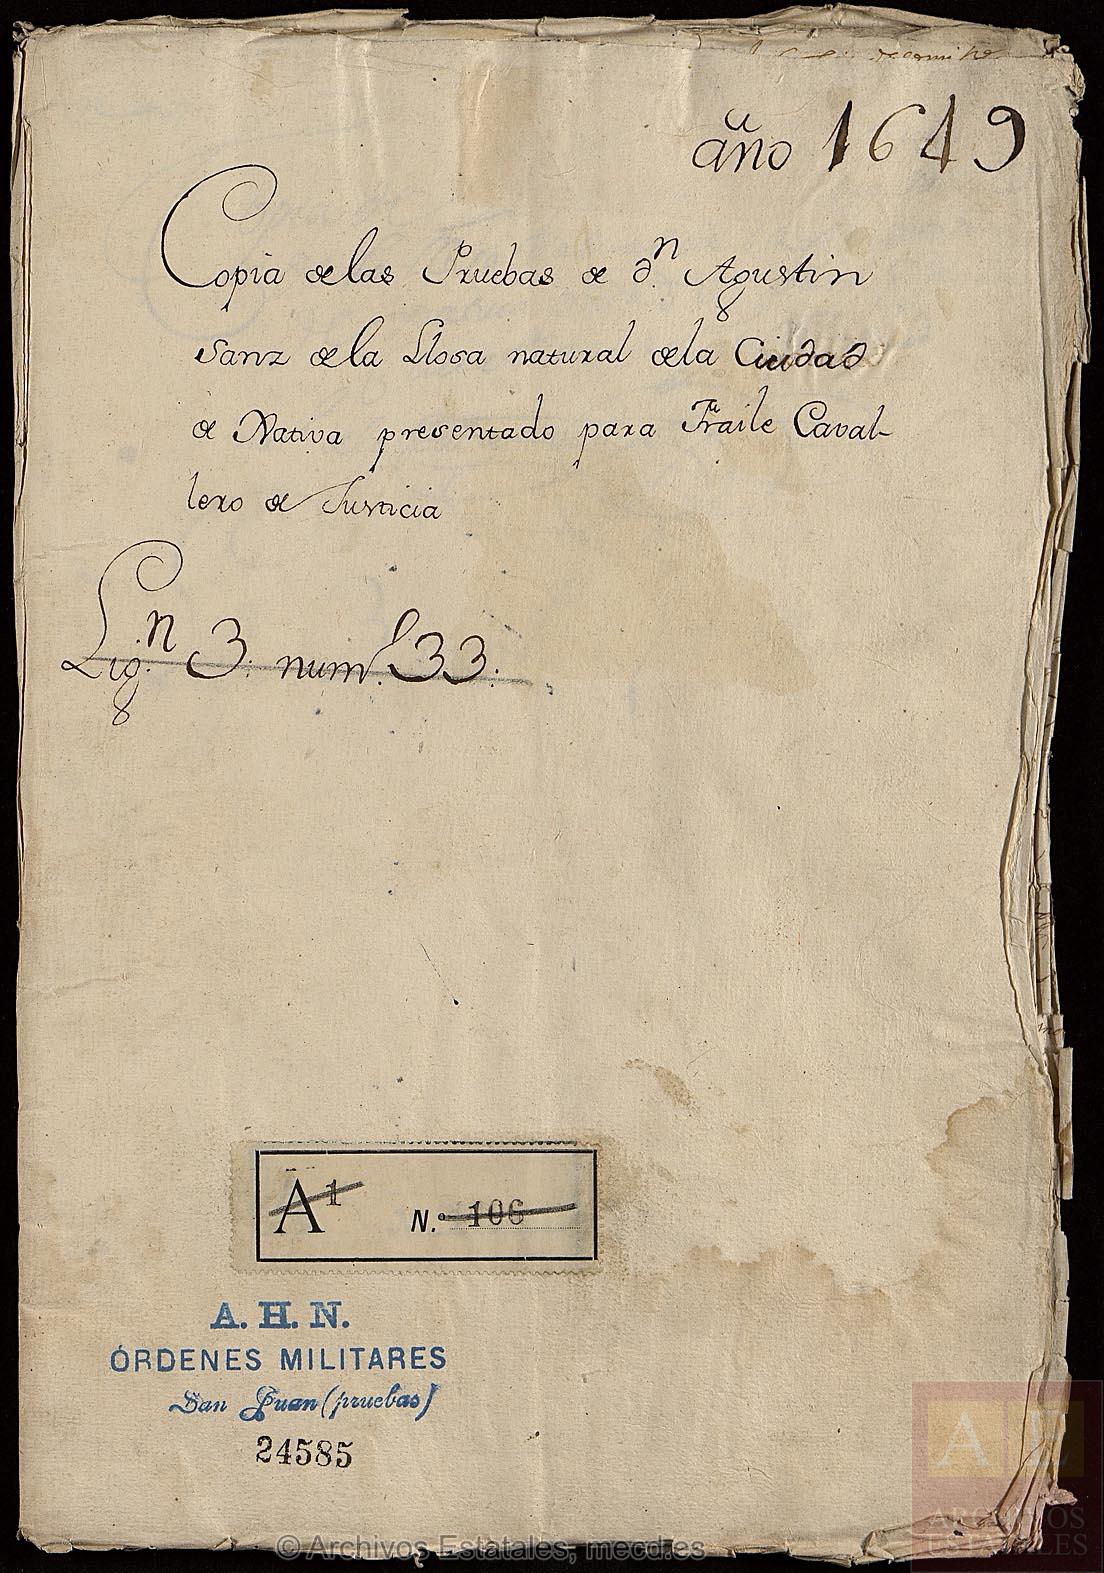 año 1649
Copia de las Pruebas de Dn. Agustin
Sanz de la Llosa natural de la Ciudad
de Xativa presentado para Fraile Caval-
lero de Justicia
Lig.n 3. num.l 33.
A1 N.º 106
A. H. N.
ÓRDENES MILITARES
San Juan (pruebas)
24585
A E
ARCHIVOS
ESTATALES
© Archivos Estatales, mecd.es